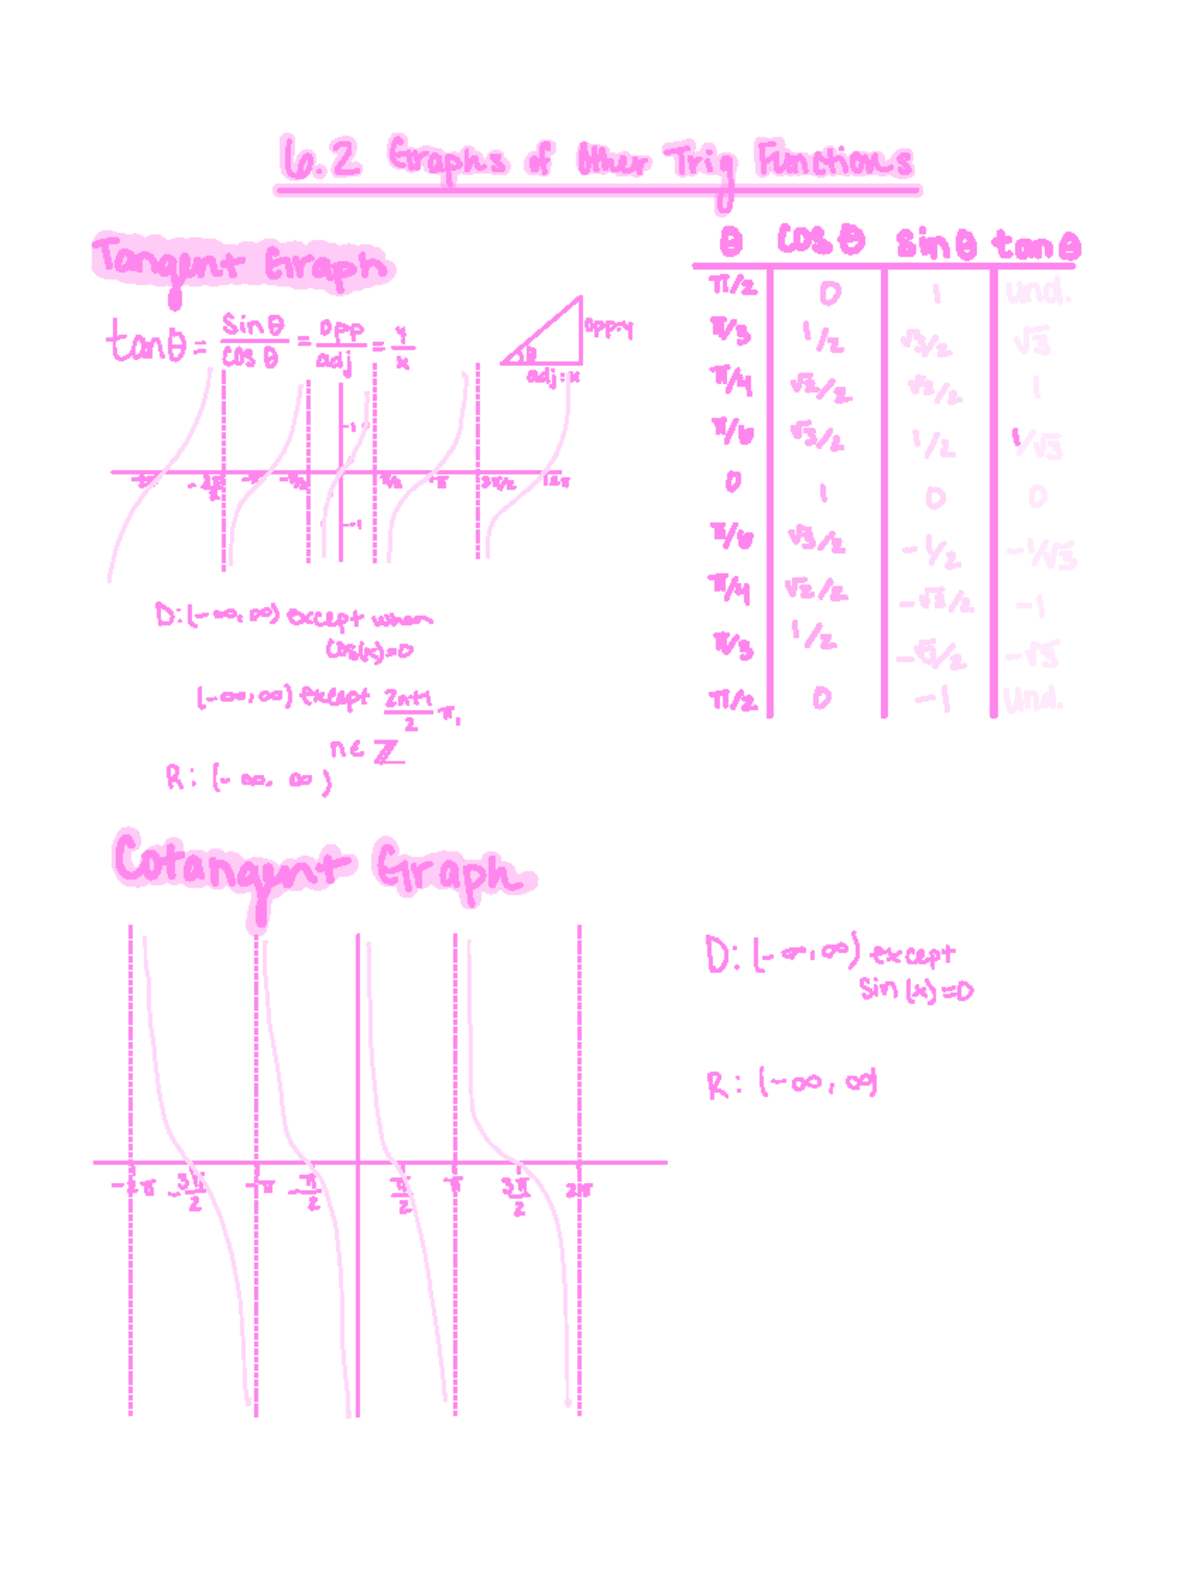 6.2 Graphs of Other Trig Functions
Tangent Graph
tanθ = sinθ/cosθ = opp/adj = y/x
opp=y
θ
adj=x
1
-3π/2 -π -π/2 π/2 π 3π/2 2π
-1
D: (-∞, ∞) except when
cos(x)=0
(-∞, ∞) except 2n+1/2 π,
n∈ℤ
R: (-∞, ∞)
θ cosθ sinθ tanθ
π/2 0 1 und.
π/3 1/2 √3/2 √3
π/4 √2/2 √2/2 1
π/6 √3/2 1/2 1/√3
0 1 0 0
π/6 √3/2 -1/2 -1/√3
π/4 √2/2 -√2/2 -1
π/3 1/2 -√3/2 -√3
π/2 0 -1 Und.
Cotangent Graph
-2π -3π/2 -π -π/2 π/2 π 3π/2 2π
D: (-∞, ∞) except
sin(x)=0
R: (-∞, ∞)